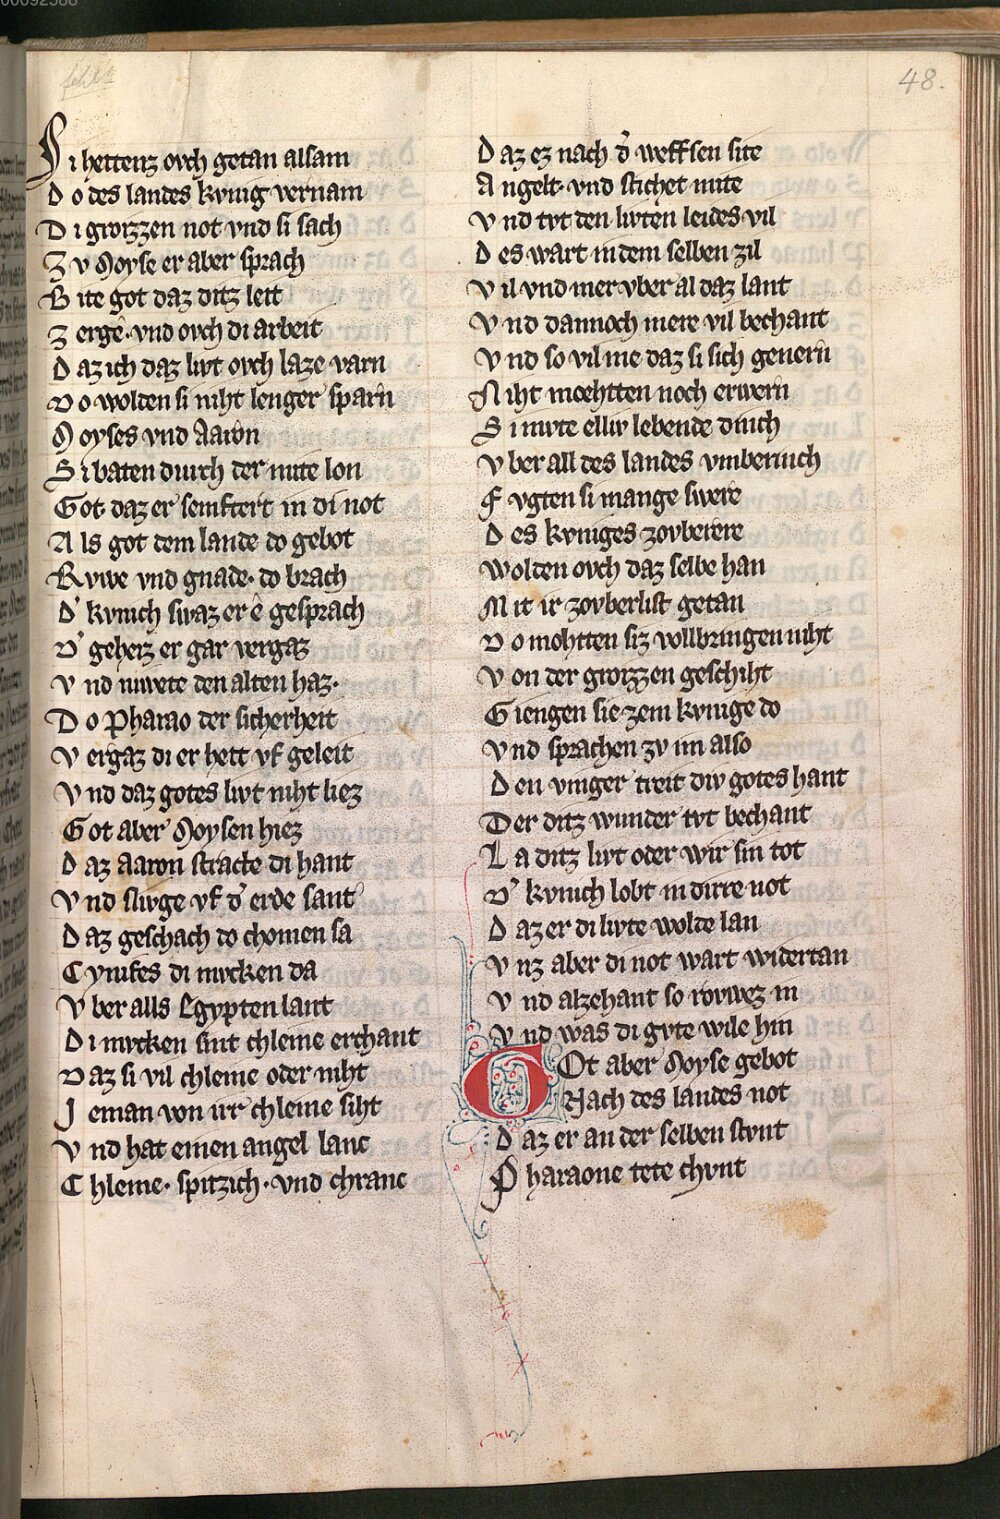 00092588
fehlt
48.
Si hettenz ovch getan alsam
Do des landes kvnig vernam
Di grozzen not vnd si sach
Zv Moyse er aber sprach
Bite got daz ditz leit
Zergē· vnd ovch di arbeit
Daz ich daz livt ovch laze varn
Do wolden si niht lenger sparn
Moyses vnd Aaron
Si baten durch der mite lon
Got· daz er semftert in di not
Als got dem lande do gebot
Rvwe vnd gnade· do brach
D' kvnich swaz er ê gesprach
D' geheiz er gar vergaz
Vnd niwete den alten haz·
Do Pharao der sicherheit
Vergaz di er hett vf geleit
Vnd daz gotes livt niht liez
Got aber Moysen hiez
Daz aaron stracte di hant
Vnd slvge vf d' erde sant
Daz geschach do chomen sa
Cynifes di mvcken da
Vber alls Egypten lant
Di mvcken sint chleine erchant
Daz si vil chleine oder niht
Jeman von irr chleine siht
Vnd hat einen angel lanc
Chleine· spitzich· vnd chranc
Daz ez nach d' weffsen site
Angelt· vnd stichet mite
Vnd tvt den livten leides vil
Des wart in dem selben zil
Vil vnd mer vber al daz lant
Vnd dannoch mere vil bechant
Vnd so vil me daz si sich genern
Niht moehtten noch erwern
Si mvte elliv lebende dinch
Vber all des landes vmberinch
Fvgten si mange swere
Des kvniges zovberere
Wolden ovch daz selbe han
Mit ir zovberlist getan
Do mohtten siz vollbringen niht
Von der grozzen geschiht
Giengen sie zem kvnige do
Vnd sprachen zv im also
Den vinger treit div gotes hant
Der ditz wunder tvt bechant
La ditz livt oder wir sin tot
D' kvnich lobt in dirre not
Daz er di livte wolde lan
Vnz aber di not wart widertan
Vnd alzehant so rovwez in
Vnd was di gvte wile hin
Got aber Moyse gebot
Nach des landes not
Daz er an der selben stvnt
Pharaone tete chvnt